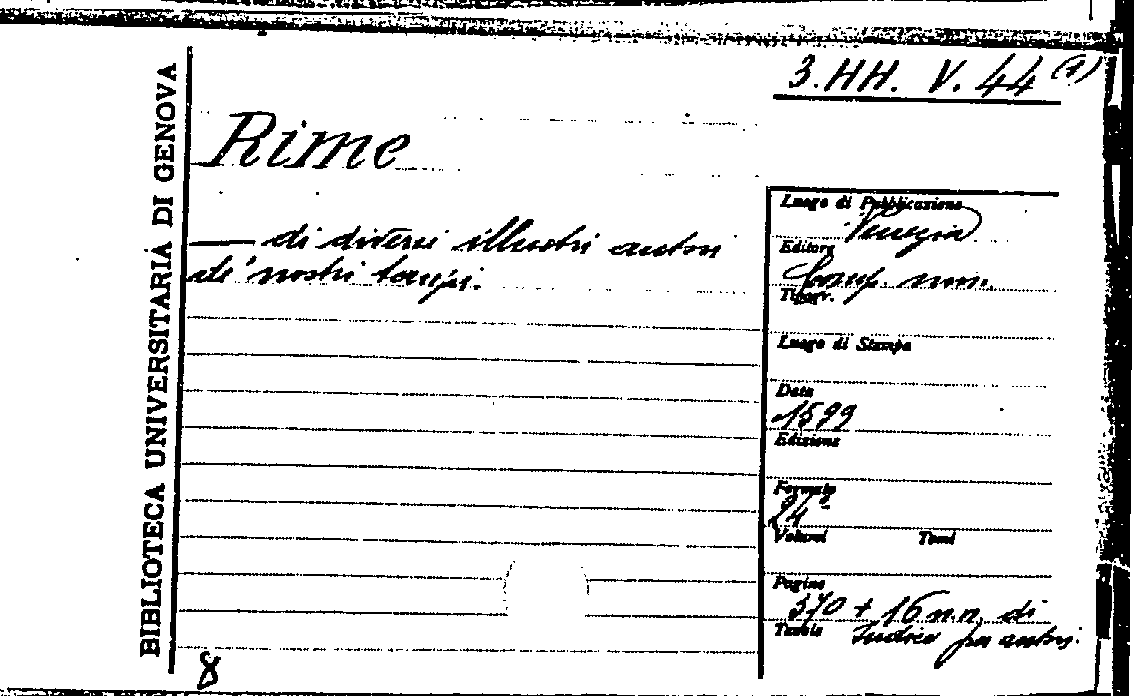 BIBLIOTECA UNIVERSITARIA DI GENOVA
3.HH. V. 44 (1)
Rime
— di diversi illustri autori
de' nostri tempi.
Luogo di Pubblicazione
Venezia
Editore
Comp. min.
Tipogr.
Luogo di Stampa
Data
1599
Edizione
Formato
24°
Volumi Tomi
Pagine
370 + 16 n.n. di
Tavole Indice per autori.
8